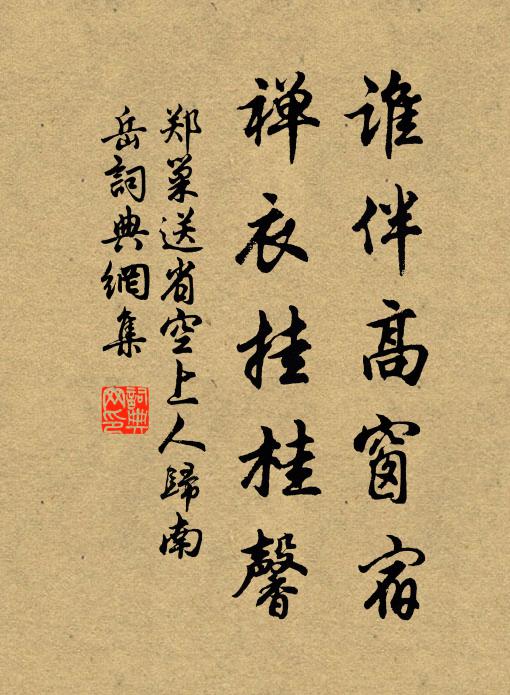 谁伴高窗宿
禅衣挂桂馨
郑巢送省空上人歸南
岳詞典網集
詞典
网印